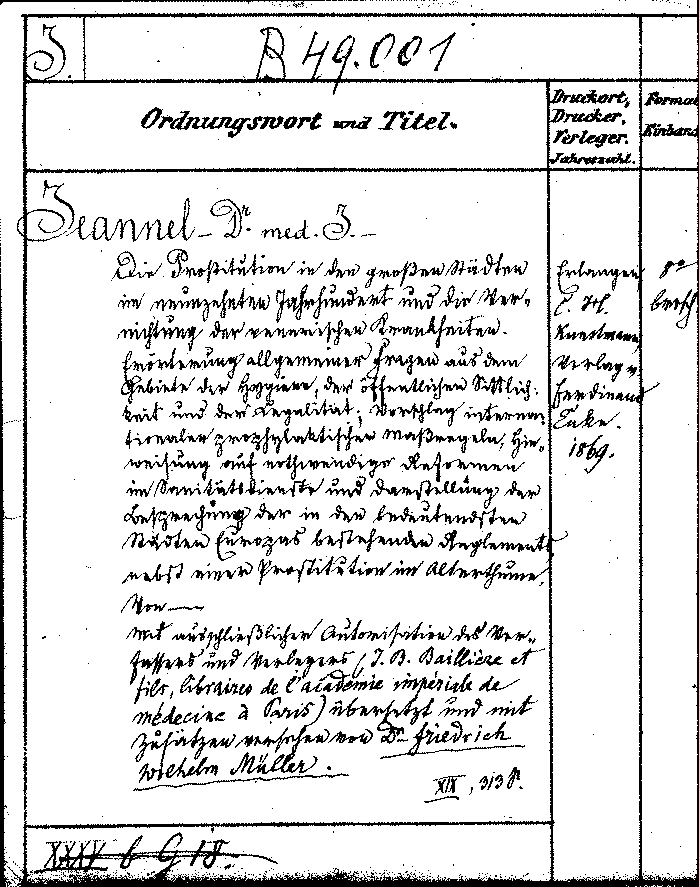 J.
B 49.001
Ordnungswort und Titel.
Druckort,
Drucker,
Verleger.
Jahreszahl.
Format
Einband
Jeannel – Dr. med. J. –
Die Prostitution in den großen Städten
im neunzehnten Jahrhundert und die Ver-
nichtung der venerischen Krankheiten.
Erörterung allgemeiner Fragen aus dem
Gebiete der Hygiene, der öffentlichen Sittlich-
keit und der Legalität; Vorschlag interna-
tionaler prophylaktischer Maßregeln, Hin-
weisung auf nothwendige Reformen
im Sanitätsdienste und Darstellung der
Besprechung der in den bedeutendsten
Städten Europas bestehenden Reglements
nebst einer Prostitution im Alterthume.
Von —
Mit ausschließlicher Autorisation des Ver-
fassers und Verlegers (J. B. Baillière et
fils, libraires de l'académie impériale de
médecine à Paris) übersetzt und mit
Zusätzen versehen von Dr. Friedrich
Wilhelm Müller.
XIX, 313 S.
Erlangen
C. H.
Kunstmann,
Verlag v.
Ferdinand
Enke.
1869.
8°
brosch
XXXV b G 18.